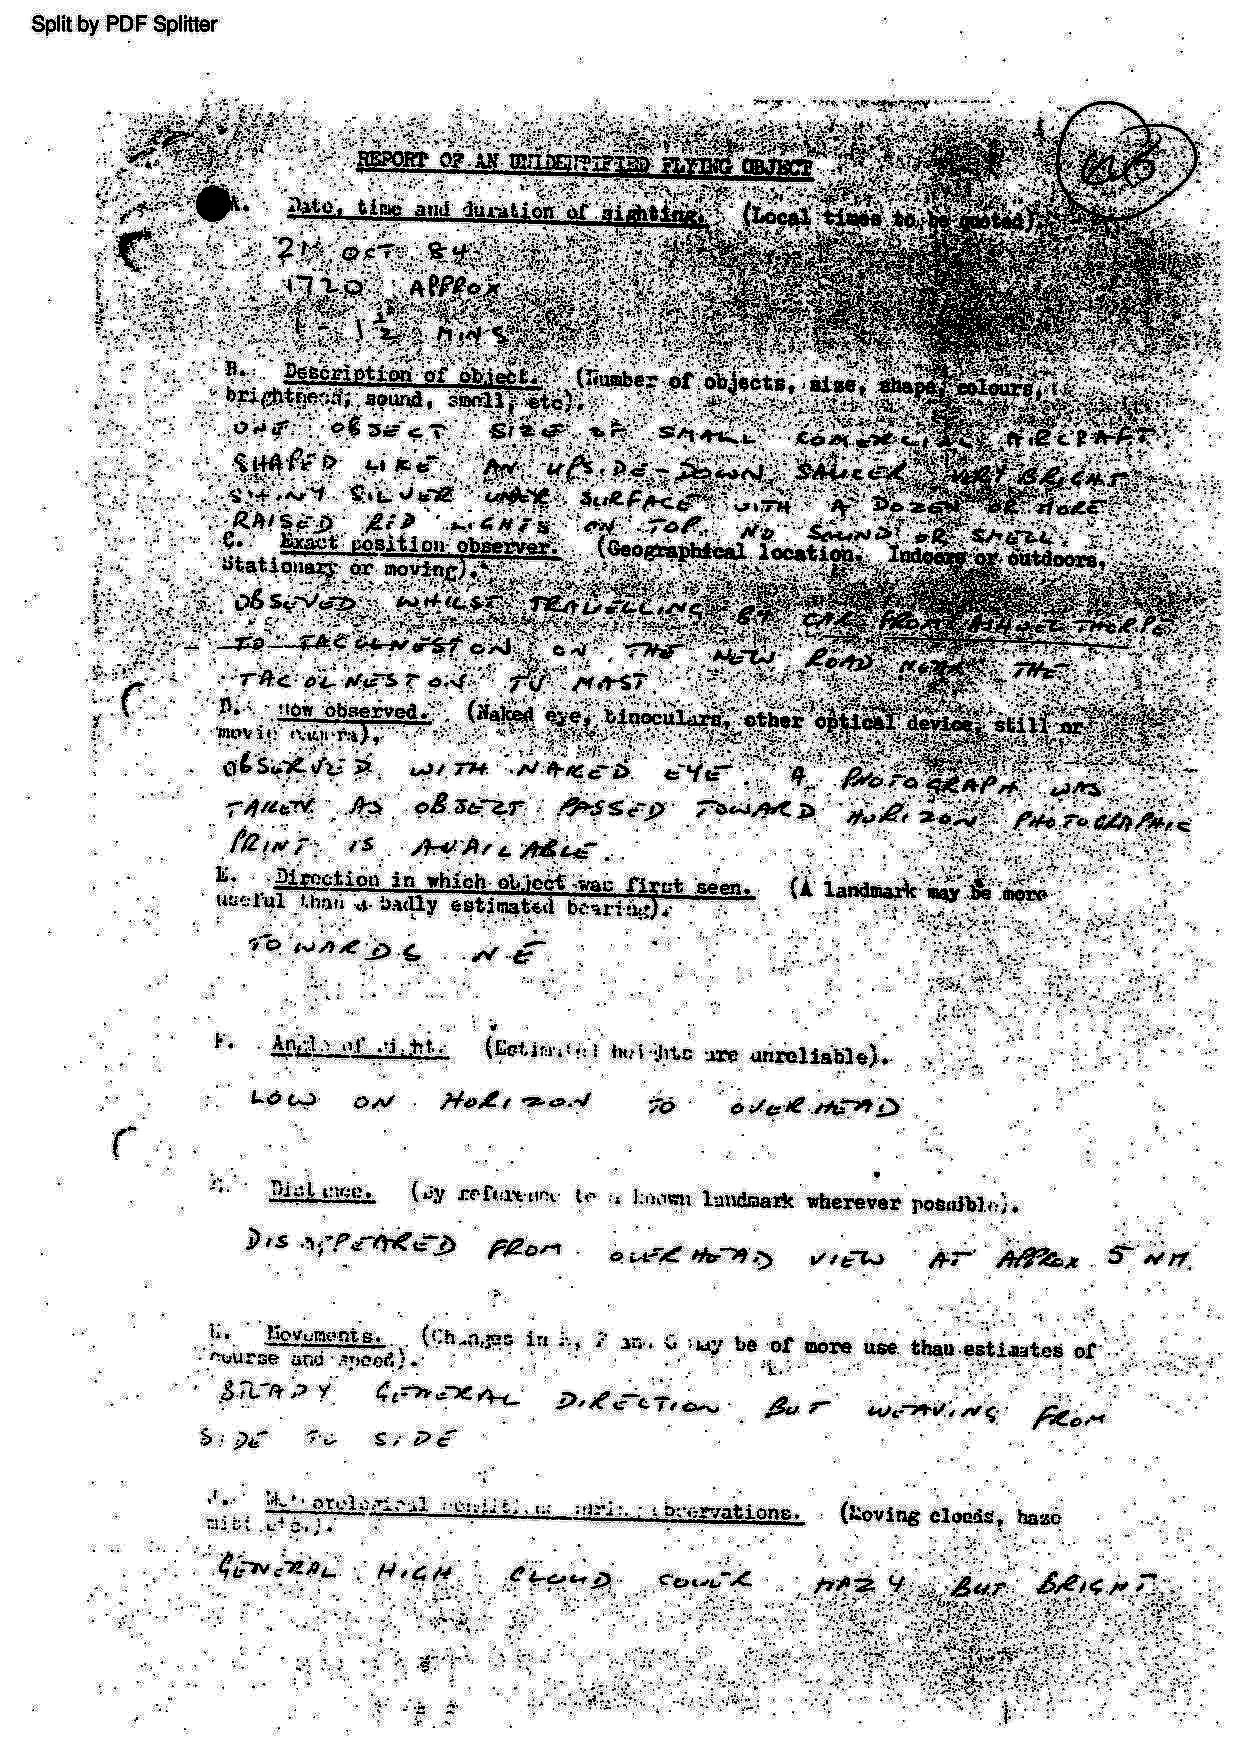 Split by PDF Splitter
REPORT OF AN UNIDENTIFIED FLYING OBJECT
A. Date, time and duration of sighting. (Local times to be quoted)
21 OCT 84
1720 APPROX
1 - 1 1/2 MINS
B. Description of object. (Number of objects, size, shape, colours,
brightness, sound, smell, etc).
ONE OBJECT SIZE OF SMALL COMERCIAL AIRCRAFT
SHAPED LIKE AN UPSIDE-DOWN SAUCER VERY BRIGHT
SHINY SILVER UNDER SURFACE WITH A DOZEN OR MORE
RAISED RED LIGHTS ON TOP. NO SOUND OR SMELL.
C. Exact position observer. (Geographical location. Indoors or outdoors,
Stationary or moving).
OBSERVED WHILST TRAVELLING BY CAR FROM ASHWELTHORPE
TO TACOLNESTON ON THE NEW ROAD NEAR THE
TACOLNESTON TV MAST
D. How observed. (Naked eye, binoculars, other optical device, still or
movie camera).
OBSERVED WITH NAKED EYE. A PHOTOGRAPH WAS
TAKEN AS OBJECT PASSED TOWARD HORIZON PHOTOGRAPHIC
PRINT IS AVAILABLE.
E. Direction in which object was first seen. (A landmark may be more
useful than a badly estimated bearing).
TOWARDS NE
F. Angle of sight. (Estimated heights are unreliable).
LOW ON HORIZON TO OVERHEAD
G. Distance. (By reference to a known landmark wherever possible).
DISAPPEARED FROM OVERHEAD VIEW AT APPROX 5 NM.
H. Movements. (Changes in E, F and G may be of more use than estimates of
course and speed).
STEADY GENERAL DIRECTION BUT WEAVING FROM
SIDE TO SIDE
J. Meteorological conditions during observations. (Moving clouds, haze
mist etc.).
GENERAL HIGH CLOUD COVER HAZY BUT BRIGHT